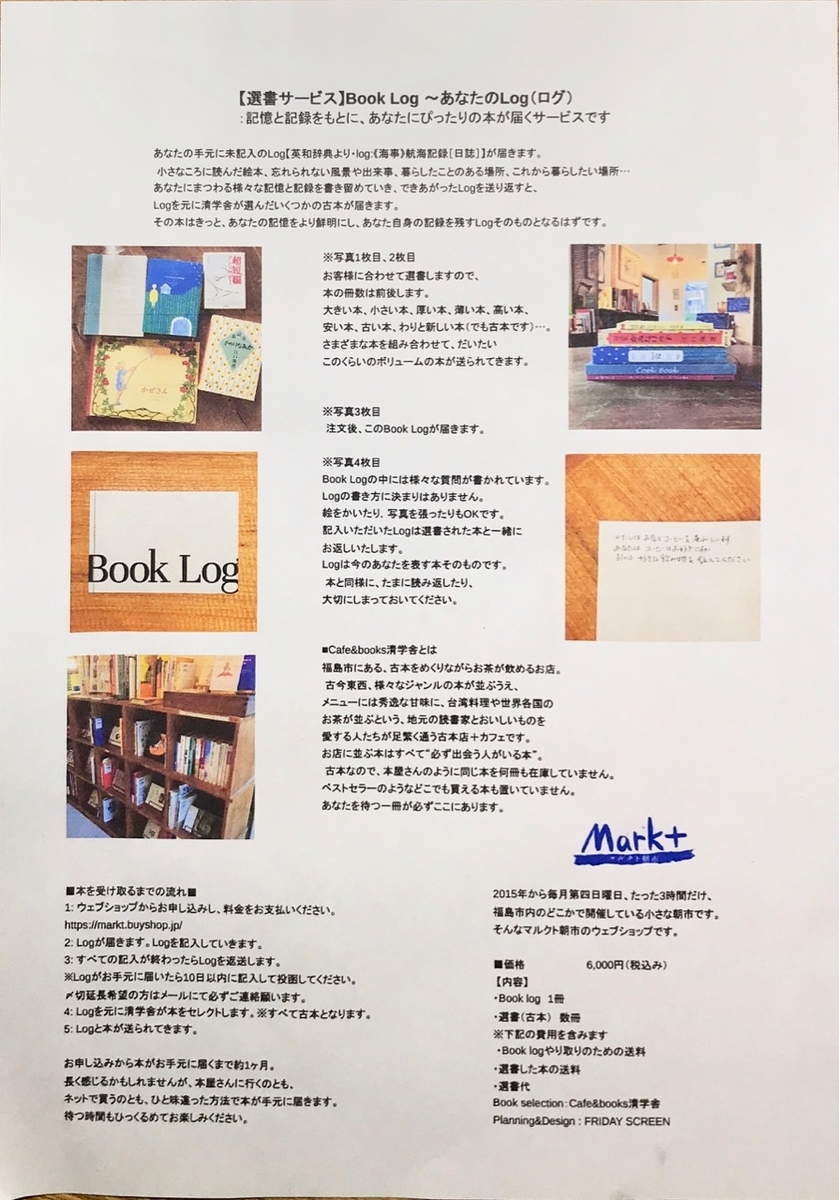 【選書サービス】Book Log ～あなたのLog(ログ)
：記憶と記録をもとに、あなたにぴったりの本が届くサービスです
あなたの手元に未記入のLog【英和辞典より・log:《海事》航海記録［日誌］】が届きます。
小さなころに読んだ絵本、忘れられない風景や出来事、暮らしたことのある場所、これから暮らしたい場所…
あなたにまつわる様々な記憶と記録を書き留めていき、できあがったLogを送り返すと、
Logを元に清学舎が選んだいくつかの古本が届きます。
その本はきっと、あなたの記憶をより鮮明にし、あなた自身の記録を残すLogそのものとなるはずです。
超短編
かぜさん
※写真1枚目、2枚目
お客様に合わせて選書しますので、
本の冊数は前後します。
大きい本、小さい本、厚い本、薄い本、高い本、
安い本、古い本、わりと新しい本（でも古本です）…。
さまざまな本を組み合わせて、だいたい
このくらいのボリュームの本が送られてきます。
Cook Book
※写真3枚目
注文後、このBook Logが届きます。
Book Log
※写真4枚目
Book Logの中には様々な質問が書かれています。
Logの書き方に決まりはありません。
絵をかいたり、写真を張ったりもOKです。
記入いただいたLogは選書された本と一緒に
お返しいたします。
Logは今のあなたを表す本そのものです。
本と同様に、たまに読み返したり、
大切にしまっておいてください。
■Cafe&books清学舎とは
福島市にある、古本をめくりながらお茶が飲めるお店。
古今東西、様々なジャンルの本が並ぶうえ、
メニューには秀逸な甘味に、台湾料理や世界各国の
お茶が並ぶという、地元の読書家とおいしいものを
愛する人たちが足繁く通う古本店＋カフェです。
お店に並ぶ本はすべて“必ず出会う人がいる本”。
古本なので、本屋さんのように同じ本を何冊も在庫していません。
ベストセラーのようなどこでも買える本も置いていません。
あなたを待つ一冊が必ずここにあります。
Markt
■本を受け取るまでの流れ■
1: ウェブショップからお申し込みし、料金をお支払いください。
https://markt.buyshop.jp/
2: Logが届きます。Logを記入していきます。
3: すべての記入が終わったらLogを返送します。
※Logがお手元に届いたら10日以内に記入して投函してください。
〆切延長希望の方はメールにて必ずご連絡願います。
4: Logを元に清学舎が本をセレクトします。※すべて古本となります。
5: Logと本が送られてきます。
お申し込みから本がお手元に届くまで約1ヶ月。
長く感じるかもしれませんが、本屋さんに行くのとも、
ネットで買うのとも、ひと味違った方法で本が手元に届きます。
待つ時間もひっくるめてお楽しみください。
2015年から毎月第四日曜日、たった3時間だけ、
福島市内のどこかで開催している小さな朝市です。
そんなマルクト朝市のウェブショップです。
■価格 6,000円（税込み）
【内容】
・Book log 1冊
・選書（古本） 数冊
※下記の費用を含みます
・Book logやり取りのための送料
・選書した本の送料
・選書代
Book selection：Cafe&books清学舎
Planning&Design : FRIDAY SCREEN